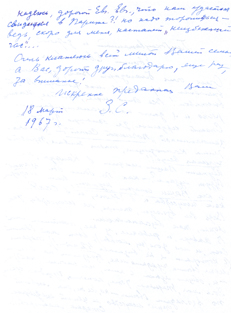 кажись, дорогой Евг. Евг., что нам удастся
свидеться в Париже?! но надо торопиться –
ведь, скоро для меня, настанет, неизбежный
час!...
Очень кланяюсь Вашей семье.
А Вас, дорогой друг, благодарю, еще раз,
за внимание!
Искренно преданная Вам
З.С.
18 март
1967 г.